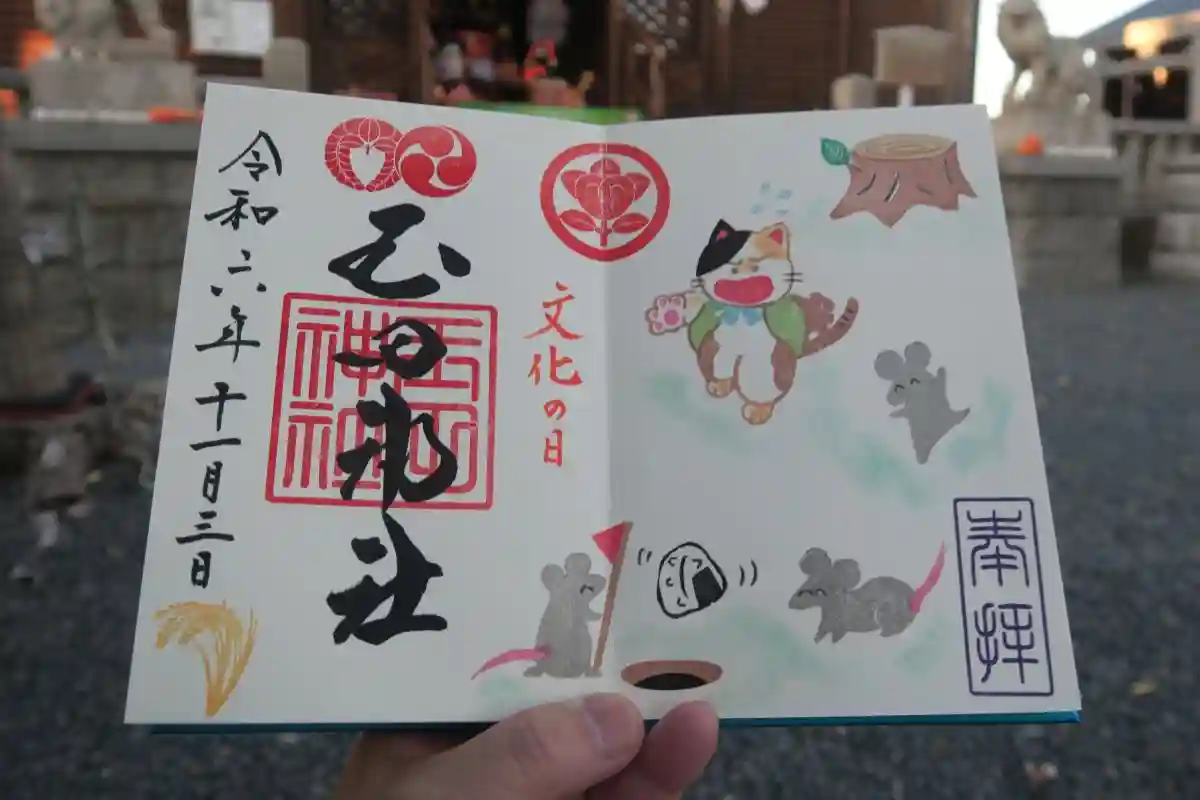 奉拝
文化の日
玉田神社
玉田
神社
令和六年十一月三日